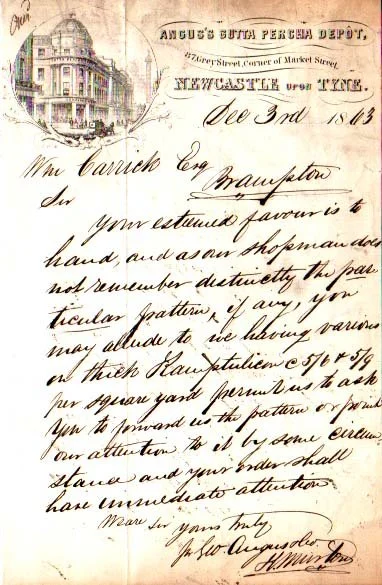 Ansd
ANGUS'S GUTTA PERCHA DEPÔT,
Grey Street, Corner of Market Street,
NEWCASTLE UPON TYNE.
Dec 3rd 1863
Wm Carrick Esq
Brampton
Sir
Your esteemed favour is to
hand, and as our shopman does
not remember distinctly the par
ticular pattern, if any, you
may allude to we having various
on thick Kamptulicon @ 5/6 & 5/9
per square yard permit us to ask
you to forward us the pattern or point
our attention to it by some circum
stance and your order shall
have immediate attention
We are Sir yours truly
pr Geo Angus & Co